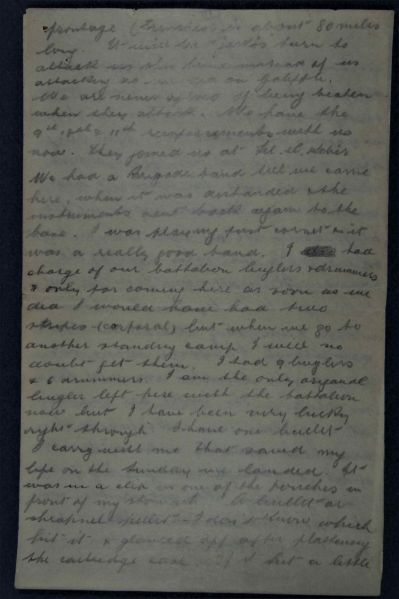 frontage (Trenches) is about 80 miles
long. It will be Jacko's turn to
attack us now instead of us
attacking as we did on Gallipoli.
We are never afraid of being beaten
when they attack. We have the
9th, 10th & 11th reinforcements with us
now. They joined us at Tel El Kebir
We had a Brigade band till we came
here, when it was disbanded & the
instruments sent back again to the
base. I was playing first cornet & it
was a really good band. I had
charge of our battalion buglers & drummers
& only for coming here as soon as we
did I would have had two
stripes (corporal) but when we go to
another standing camp I will no
doubt get them. I had 9 buglers
& 6 drummers. I am the only original
bugler left here with the battalion
now but I have been very lucky
right through. I have one bullet
I carry with me that saved my
life on the Sunday we landed. It
was in a clip in one of the pouches in
front of my stomach. A bullet or
shrapnel pellet I don't know which
hit it & glanced off after flattening
the cartridge case. If it hit a little